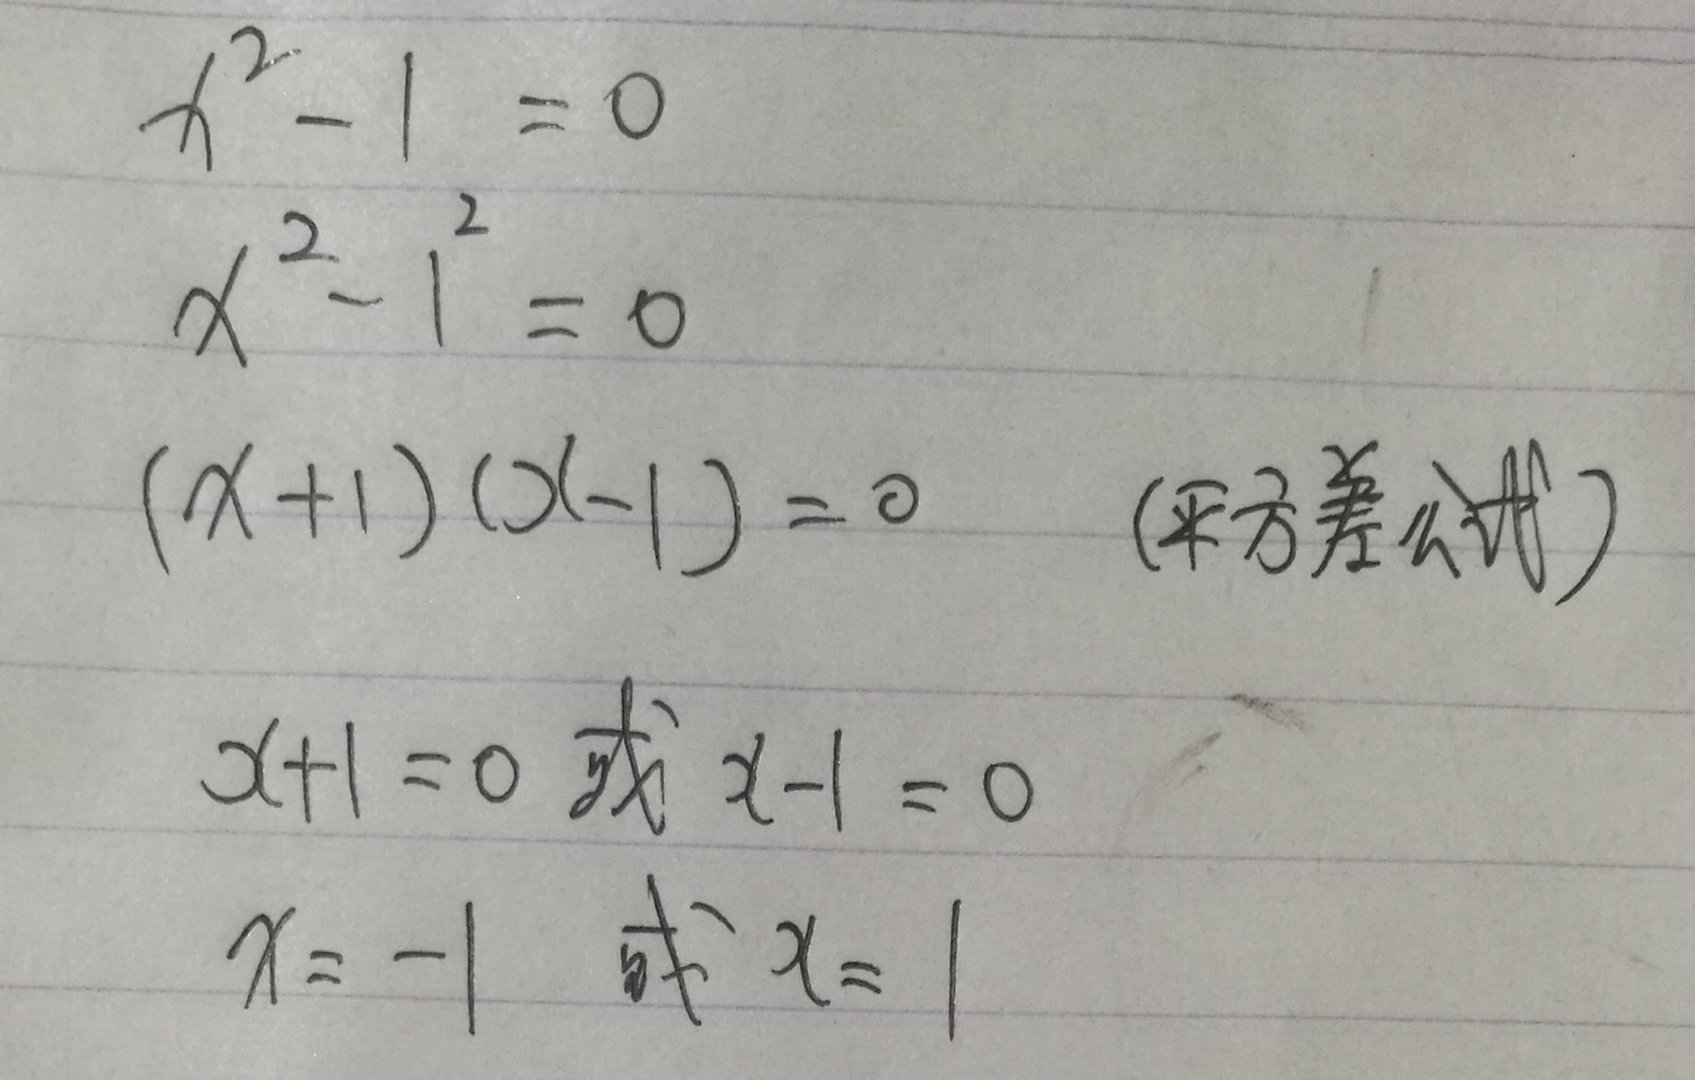 x² - 1 = 0
x² - 1² = 0
(x+1)(x-1) = 0 (平方差公式)
x+1 = 0 或 x-1 = 0
x = -1 或 x = 1